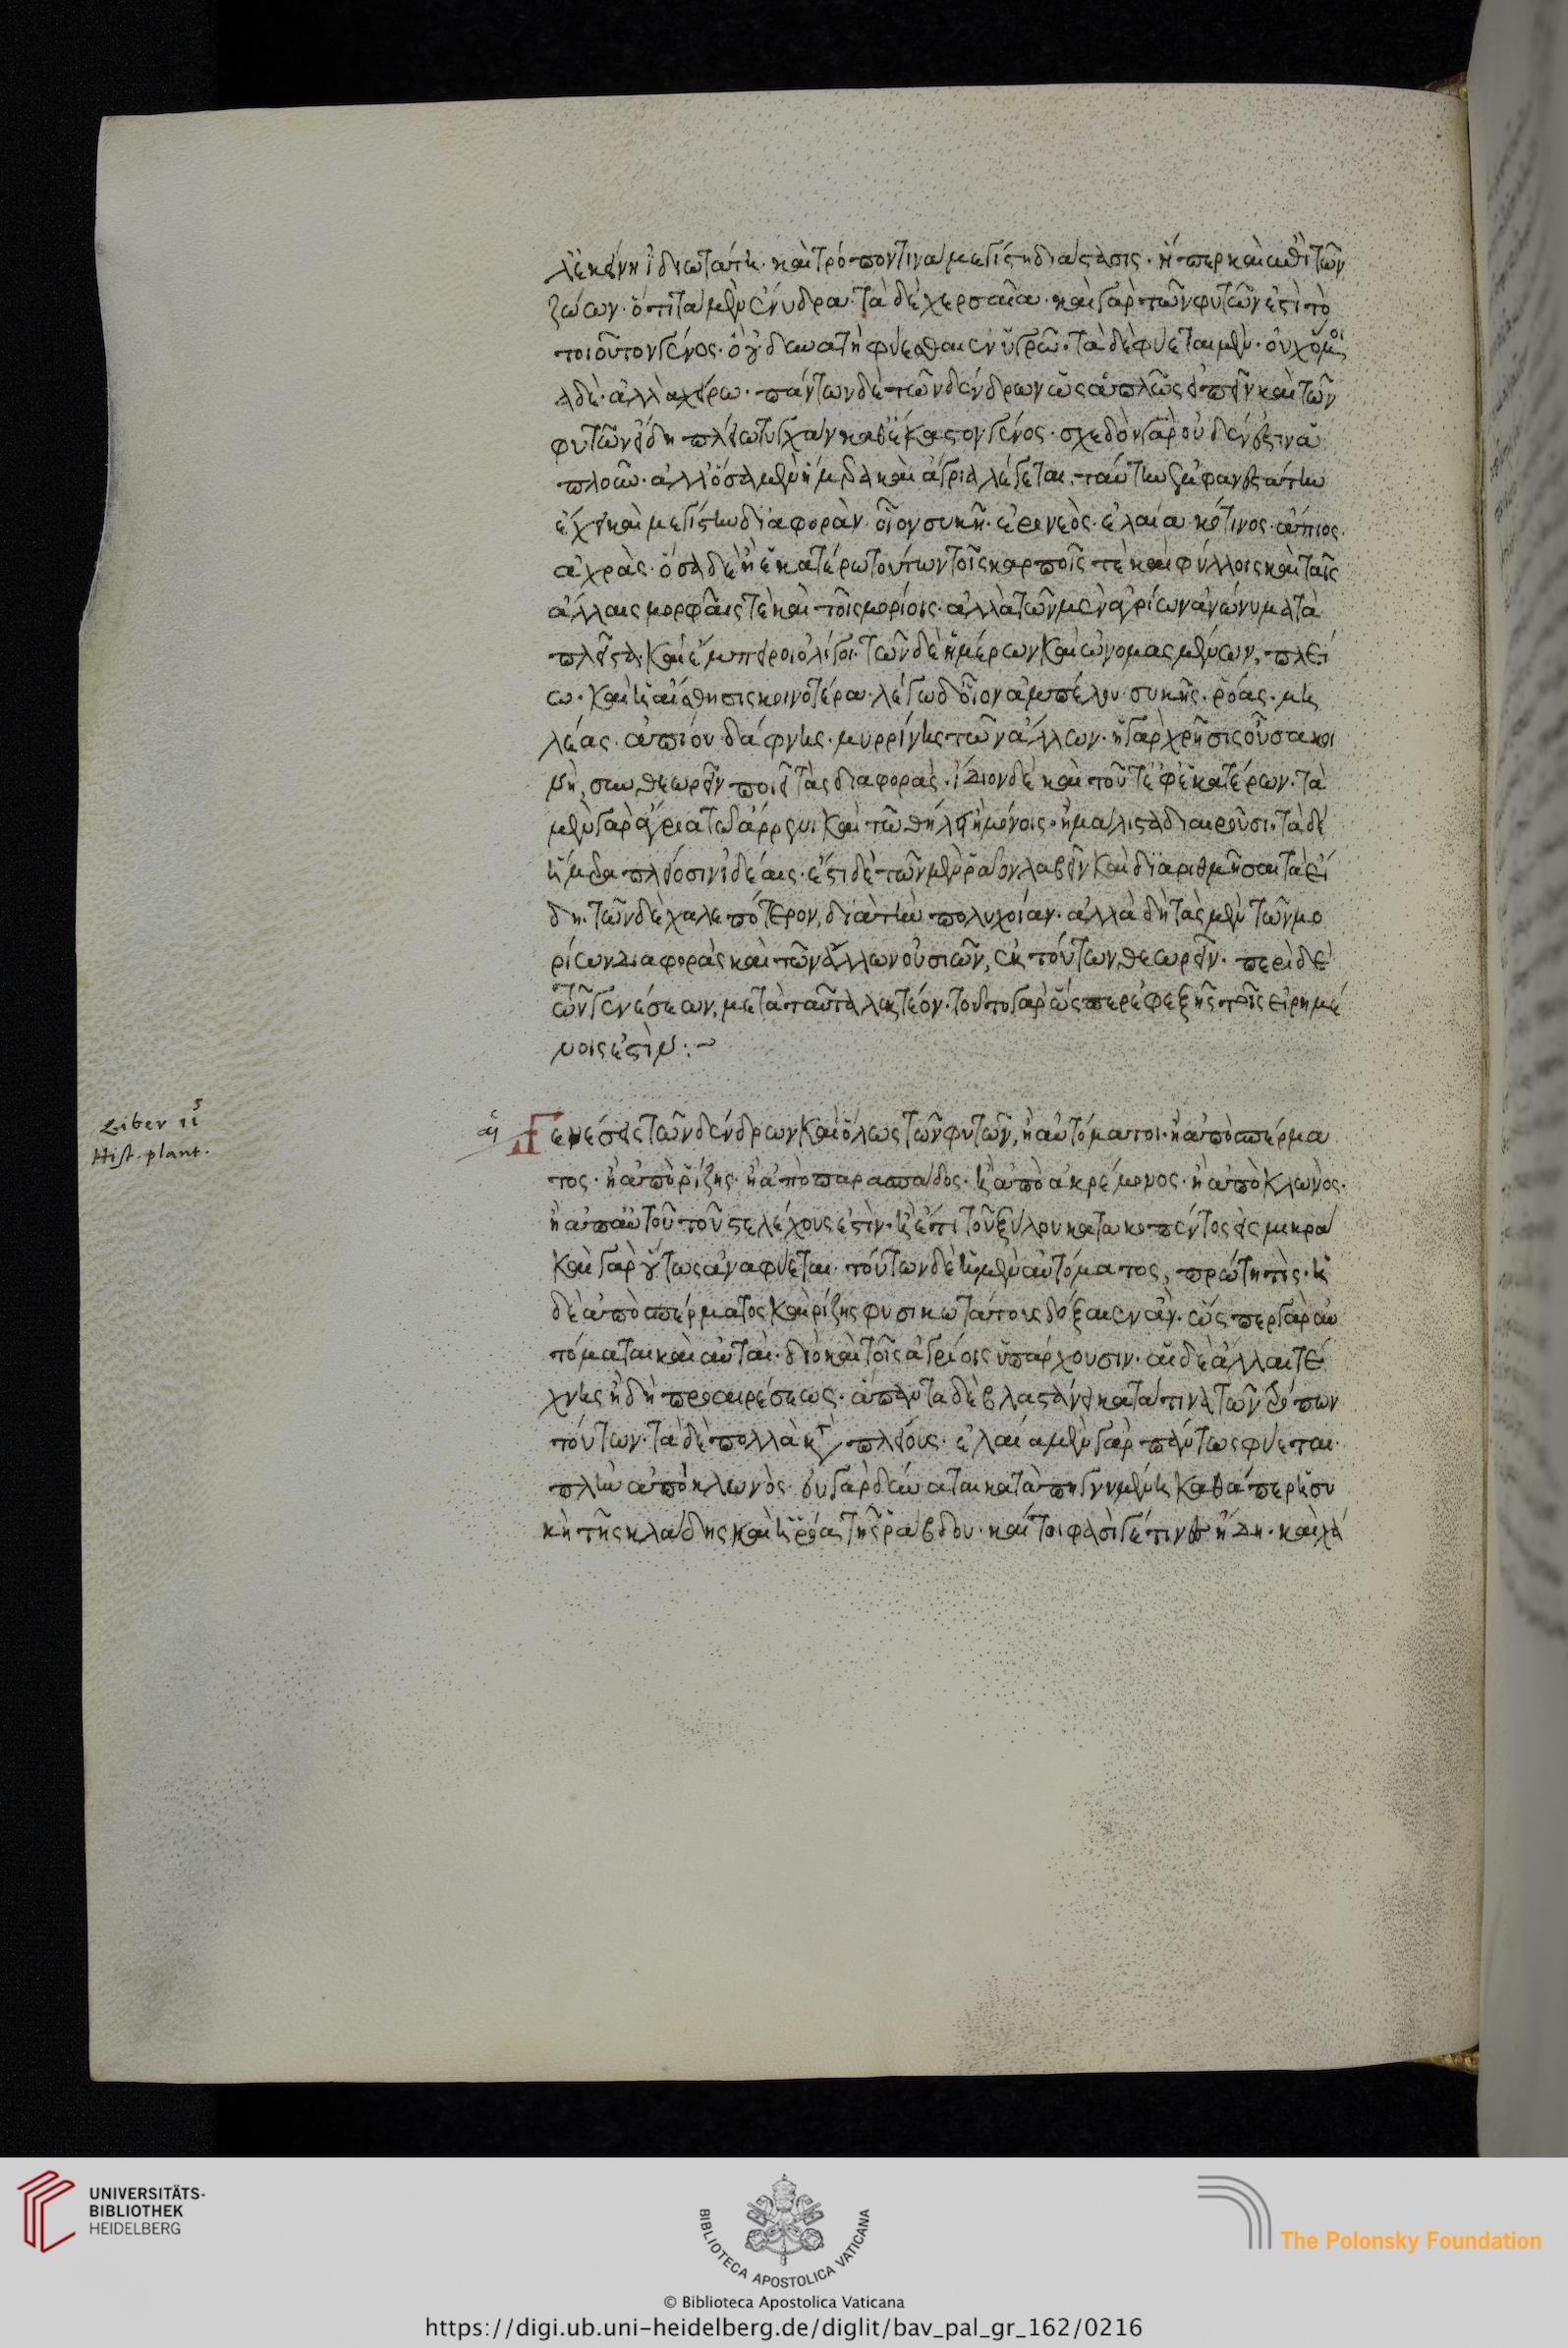 λεκείνη ἰδιωτάτη· καὶ τρόπον τινὰ μεγίστη διάστασις· ἥπερ καὶ ἐπὶ τῶν
ζώων· ὅτι τὰ μὲν ἔνυδρα· τὰ δὲ χερσαῖα· καὶ γὰρ τῶν φυτῶν ἐστί τι
τοιοῦτον γένος· ὃ οὐ δύναται φύεσθαι ἐν ὑγρῷ· τὰ δὲ φύεται μὲν· οὐχ ὅμοι
α δὲ· ἀλλὰ χείρω· πάντων δὲ τῶν δένδρων ὡς ἁπλῶς εἰπεῖν καὶ τῶν
φυτῶν εἴδη πλείω τυγχάνει καθ' ἕκαστον γένος· σχεδὸν γὰρ οὐδέν ἐστιν ἁ
πλοῦν· ἀλλ' ὅσα μὲν ἥμερα καὶ ἄγρια λέγεται, ταύτην ἐμφανεστάτην
ἔχει καὶ μεγίστην διαφορὰν· οἷον συκῆ· ἐρινεὸς· ἐλαία· κότινος· ἄπιος·
ἀχρὰς· ὅσα δὲ ἐν ἑκατέρῳ τούτων τοῖς καρποῖς τε καὶ φύλλοις καὶ ταῖς
ἄλλαις μορφαῖς τε καὶ τοῖς μορίοις· ἀλλὰ τῶν μὲν ἀγρίων ἀνώνυμα τὰ
πλεῖστα καὶ ἔμπειροι ὀλίγοι· τῶν δὲ ἡμέρων καὶ ὠνομασμένων, πλεί
ω· καὶ ἡ αἴσθησις κοινοτέρα· λέγω δ' οἷον ἀμπέλου· συκῆς· ῥόας· μη
λέας· ἀπίου· δάφνης· μυρρίνης τῶν ἄλλων· ἡ γὰρ χρῆσις οὖσα κοι
νὴ, συνθεωρεῖν ποιεῖ τὰς διαφοράς· ἴδιον δὲ καὶ τοῦτ' ἐφ' ἑκατέρων· τὰ
μὲν γὰρ ἄγρια τῷ ἄρρενι καὶ τῷ θήλει ἢ μόνοις· ἢ μάλιστα διαιροῦσι· τὰ δὲ
ἥμερα πλείοσιν ἰδέαις· ἔστι δὲ τῶν μὲν ῥᾶον λαβεῖν καὶ διαριθμῆσαι τὰ εἴ
δη· τῶν δὲ χαλεπότερον, διὰ τὴν πολυχοίαν· ἀλλὰ δὴ τὰς μὲν τῶν μο
ρίων διαφορὰς καὶ τῶν ἄλλων οὐσιῶν, ἐκ τούτων θεωρεῖν· περὶ δὲ
τῶν γενέσεων, μετὰ ταῦτα λεκτέον· τοῦτο γὰρ ὥσπερ ἐφεξῆς τοῖς εἰρημέ
νοις ἐστὶν :~
Liber ii
Hist. plant.
Γενέσεις τῶν δένδρων καὶ ὅλως τῶν φυτῶν, ἢ αὐτόματοι· ἢ ἀπὸ σπέρμα
τος· ἢ ἀπὸ ῥίζης· ἢ ἀπὸ παρασπάδος· ἢ ἀπὸ ἀκρεμόνος· ἢ ἀπὸ κλωνὸς·
ἢ ἀπ' αὐτοῦ τοῦ στελέχους ἐστὶν· ἢ ἔτι τοῦ ξύλου κατακοπέντος εἰς μικρά
καὶ γὰρ οὕτως ἀναφύεται· τούτων δὲ ἡ μὲν αὐτόματος, πρώτη τὶς· ἡ
δὲ ἀπὸ σπέρματος καὶ ῥίζης φυσικώταται δόξαιεν ἂν· ὥσπερ γὰρ αὐ
τόμαται καὶ αὐταὶ· διὸ καὶ τοῖς ἀγρίοις ὑπάρχουσιν· αἱ δὲ ἄλλαι τέ
χνης ἢ δὴ προαιρέσεως· ἅπαντα δὲ βλαστάνει κατά τινα τῶν τρόπων
τούτων· τὰ δὲ πολλὰ κατὰ πλείους· ἐλαία μὲν γὰρ πάντως φύεται·
πλὴν ἀπὸ κλωνὸς· οὐ γὰρ δύναται καταπηγνυμένη καθάπερ ἡ συ
κὴ τῆς κλάδης καὶ ἡ ῥόα τῆς ῥάβδου· καίτοι φασί γέ τινες ἤδη· καὶ χά